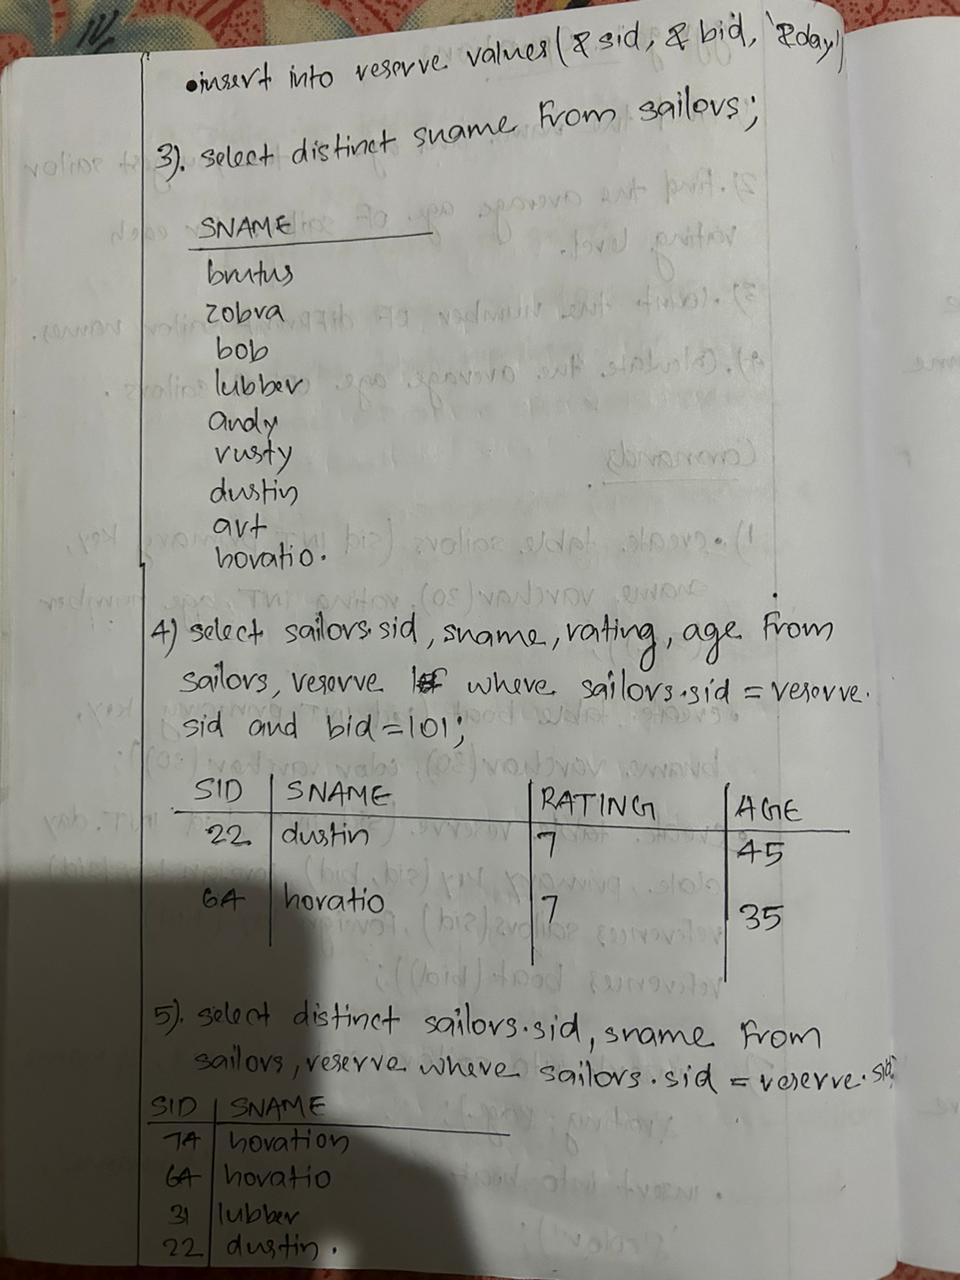 •insert into reserve values(& sid, & bid, '&day')
3). select distinct sname From sailors;
SNAME
brutus
zobra
bob
lubber
andy
rusty
dustin
art
horatio.
4) select sailors.sid, sname, rating, age From
sailors, reserve where sailors.sid = reserve.
sid and bid=101;
SID SNAME RATING AGE
22 dustin 7 45
64 horatio 7 35
5). select distinct sailors.sid, sname From
sailors, reserve where sailors.sid = reserve.sid;
SID SNAME
74 horation
64 horatio
31 lubber
22 dustin.